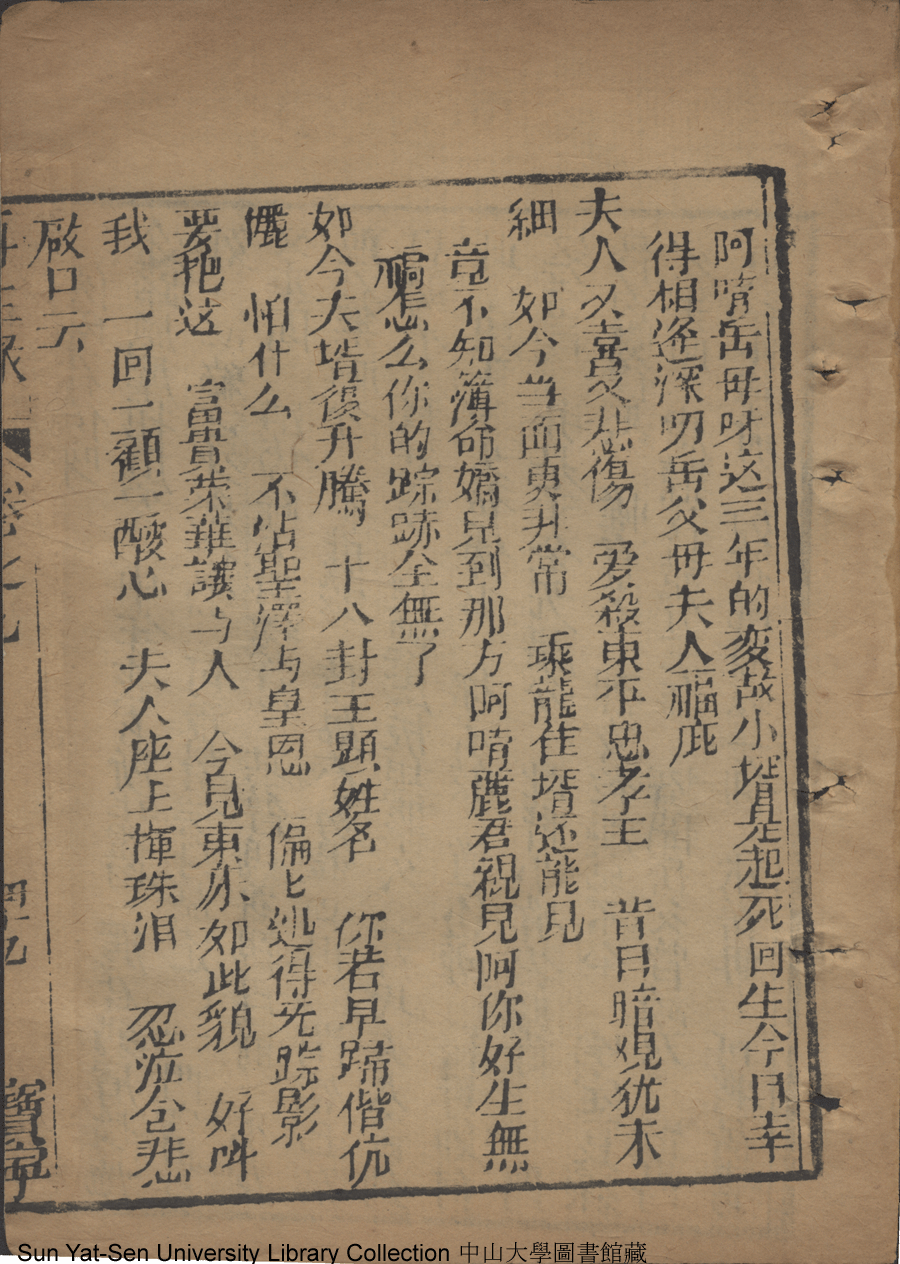 阿唷岳母呀这三年的变故小壻是起死回生今日幸
得相逢深叨岳父母夫人福庇
夫人又喜又悲傷 爱殺東平忠孝王 昔日暗覌犹未
細 如今当面更非常 乘龍佳壻还能見
竟不知薄命嬌兒到那方阿唷麗君親兒阿你好生無
福怎么你的踪跡全無了
如今夫壻復升騰 十八封王顕姓名 你若早諧偕伉
儷 怕什么 不怗聖澤与皇恩 偏匕処得无踪影
要抱这 富貴荣華讓与人 今見東床如此貌 好叫
我 一回一顧一酸心 夫人座上揮珠泪 忍泣仓悲
啟口云
再生缘 卷之九 四十九 寶寧
Sun Yat-Sen University Library Collection 中山大學圖書館藏